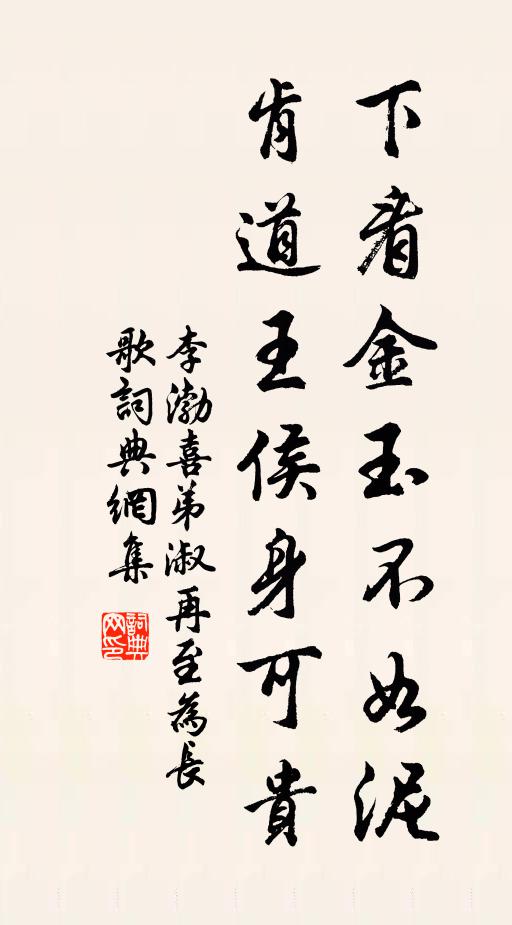 下看金玉不如泥
肯道王侯身可貴
李渤喜弟淑再至為長
歌詞典網集
詞典網印